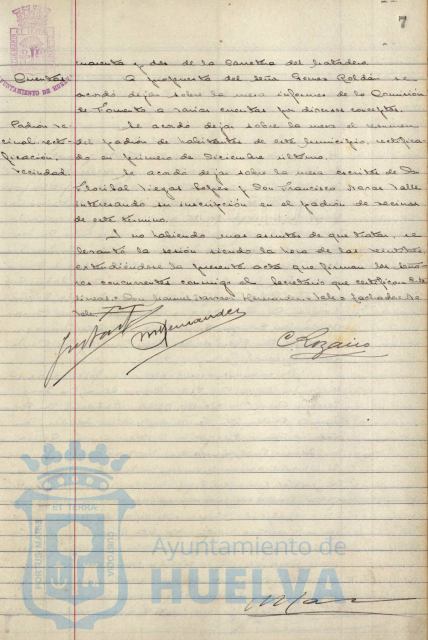 7
cuarenta y dos de la Carretra del Matadero.
Cuentas A propuesta del Señor Gomez Roldán se
AYUNTAMIENTO DE HUELVA
acordó dejar sobre la mesa informes de la Comisión
de Fomento a varias cuentas por diversos conceptos.
Padrón ve- Se acordó dejar sobre la mesa el resumen
cinal rectif del padrón de habitantes de este Municipio, rectifica-
ficación. do en primero de Diciembre último.
Vecindad. Se acordó dejar sobre la mesa escritos de Don
y Don Francisco Valle
interesando su inscripción en el padrón de vecinos
de este término.
Y no habiendo mas asuntos de que tratar, se
levantó la sesión siendo la hora de las
extendiéndose la presente acta que firman los Seño-
res concurrentes conmigo el Secretario que certifico.
líneas = Don Manuel Hernandez = Vale =
Vale
MHernandez
C Rozairo
ET TERRAE
PORTUS MARIS
CUSTODIA
Ayuntamiento de
HUELVA